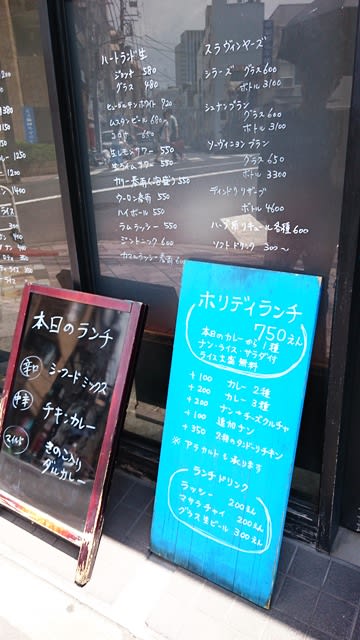 ハートランド生
ジョッキ 580
グラス 480
ヒューガルデンホワイト 920
ムスタンビール 680
コロナ 650
生レモンサワー 550
生ライムサワー 550
カリー春雨 550
ウーロン春雨 550
ハイボール 550
ラムラッシー 550
ジントニック 600
スラヴィンヤーズ
シラーズ グラス600
ボトル3100
シュナンブラン
グラス600
ボトル3100
ソーヴィニヨンブラン
グラス650
ボトル3300
ディンドリリザーブ
ボトル4600
ハーブ系リキュール各種600
ソフトドリンク 300〜
本日のランチ
辛口 シーフードミックス
中辛 チキンカレー
マイルド きのこ入り
ダルカレー
ホリデイランチ
750えん
本日のカレーから1種
ナン・ライス・サラダ付
ライス大盛無料
+100 カレー2種
+200 カレー3種
+200 ナン→チーズクルチャ
+100 追加ナン
+350 2種のタンドーリチキン
※アラカルトも承ります
ランチドリンク
ラッシー 200えん
マサラチャイ 200えん
グラス生ビール 300えん